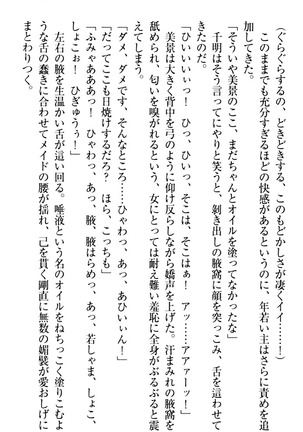 (ぐらぐらするの、どきどきする。このもどかしさが凄くイイ……！)
このままでも充分すぎるほどの快感があるというのに、年若い主はさらに責めを追
加してきた。
「そういや美景のここ、まだちゃんとオイルを塗ってなかったな」
千明はそう言ってにやりと笑うと、剝き出しの腋窩に顔を突っこみ、舌を這わせて
きたのだ。
「ひいいいいぃっ、ひっ、ひいっ、そこは、そこはぁ！　アッ……アアアーッ！」
美景は大きく背中を弓のように仰け反らしながら嬌声を上げた。汗まみれの腋窩を
舐められ、匂いを嗅がれるという、女にとっては耐え難い羞恥に全身がぶるぶると震
えてしまう。
「ダメ、ダメです、そんなところ……ひゃわっ、あっ、あひぃぃん！」
「だってここも日焼けするだろ？　ほら、こっちも」
「ふみゃああぁっ！　ひゃわっ、あっ、腋、腋はらめっ、あっ、若しゃま、しょこ、
しょこぉ！　ひぎゅうぅ！」
左右の腋を生温かい舌が這い回る。唾液という名のオイルをねちっこく塗りこむよ
うな舌の蠢きに合わせてメイドの腰が揺れ、己を貫く剛直に無数の媚襞が愛おしげに
まとわりつく。